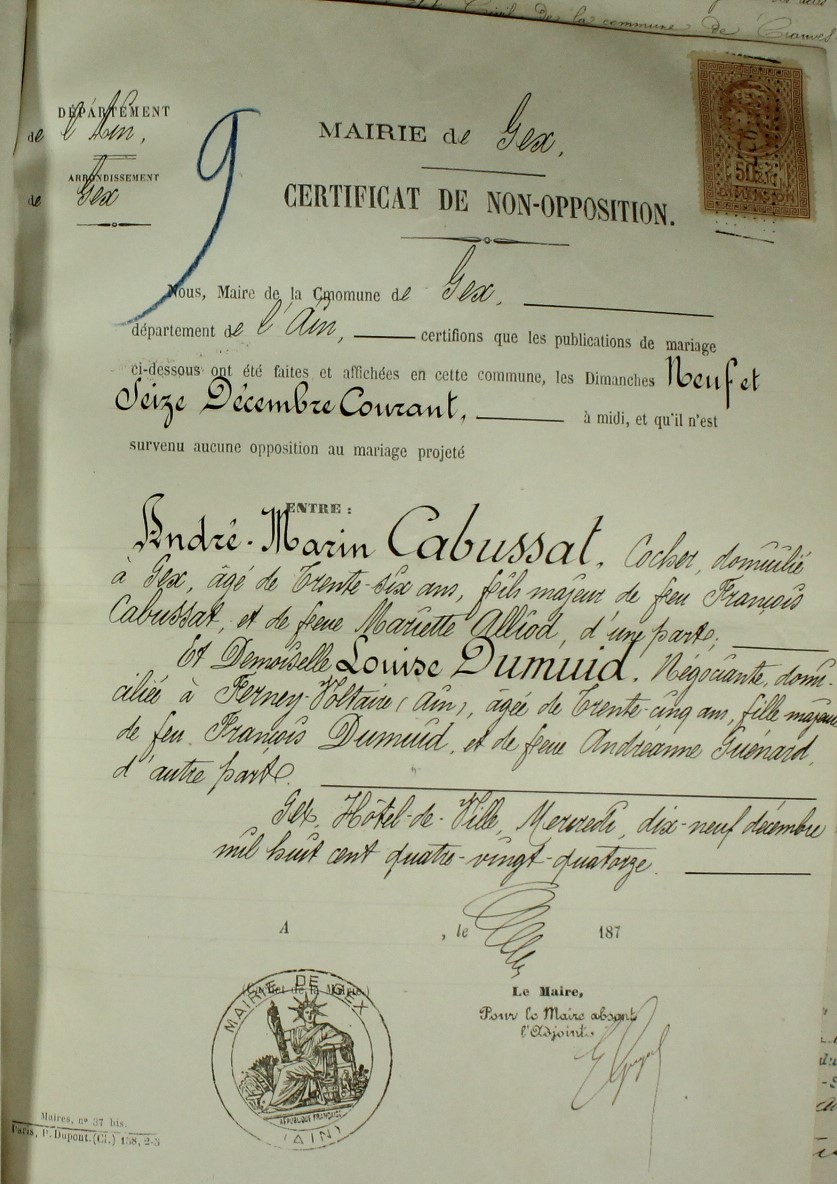 Civil de la commune de Cranves-
DÉPARTEMENT
de l'Ain,
ARRONDISSEMENT
de Gex
9
MAIRIE de Gex,
CERTIFICAT DE NON-OPPOSITION.
50c
DIMENSION
Nous, Maire de la Cmomune de Gex,
département de l'Ain, certifions que les publications de mariage
ci-dessous ont été faites et affichées en cette commune, les Dimanches Neuf et
Seize Décembre Courant, à midi, et qu'il n'est
survenu aucune opposition au mariage projeté
ENTRE :
André-Marin Cabussat, Cocher, domicilié
à Gex, âgé de Trente-six ans, fils majeur de feu François
Cabussat, et de feue Mariette Alliod, d'une part;
Et Demoiselle Louise Dumuid, Négociante, domi-
ciliée à Ferney-Voltaire (Ain), âgée de Trente-cinq ans, fille majeure
de feu François Dumuid, et de feue Andréanne Guénard,
d'autre part.
Gex, Hôtel-de-Ville, Mercredi, dix-neuf décembre
mil huit cent quatre-vingt-quatorze.
A , le 187
(Cachet de la Mairie.)
MAIRIE DE GEX
RÉPUBLIQUE FRANÇAISE
(AIN)
Le Maire,
Pour le Maire absent
l'Adjoint
Maires, nº 37 bis.
Paris, P. Dupont. (Cl.) 158, 2-5